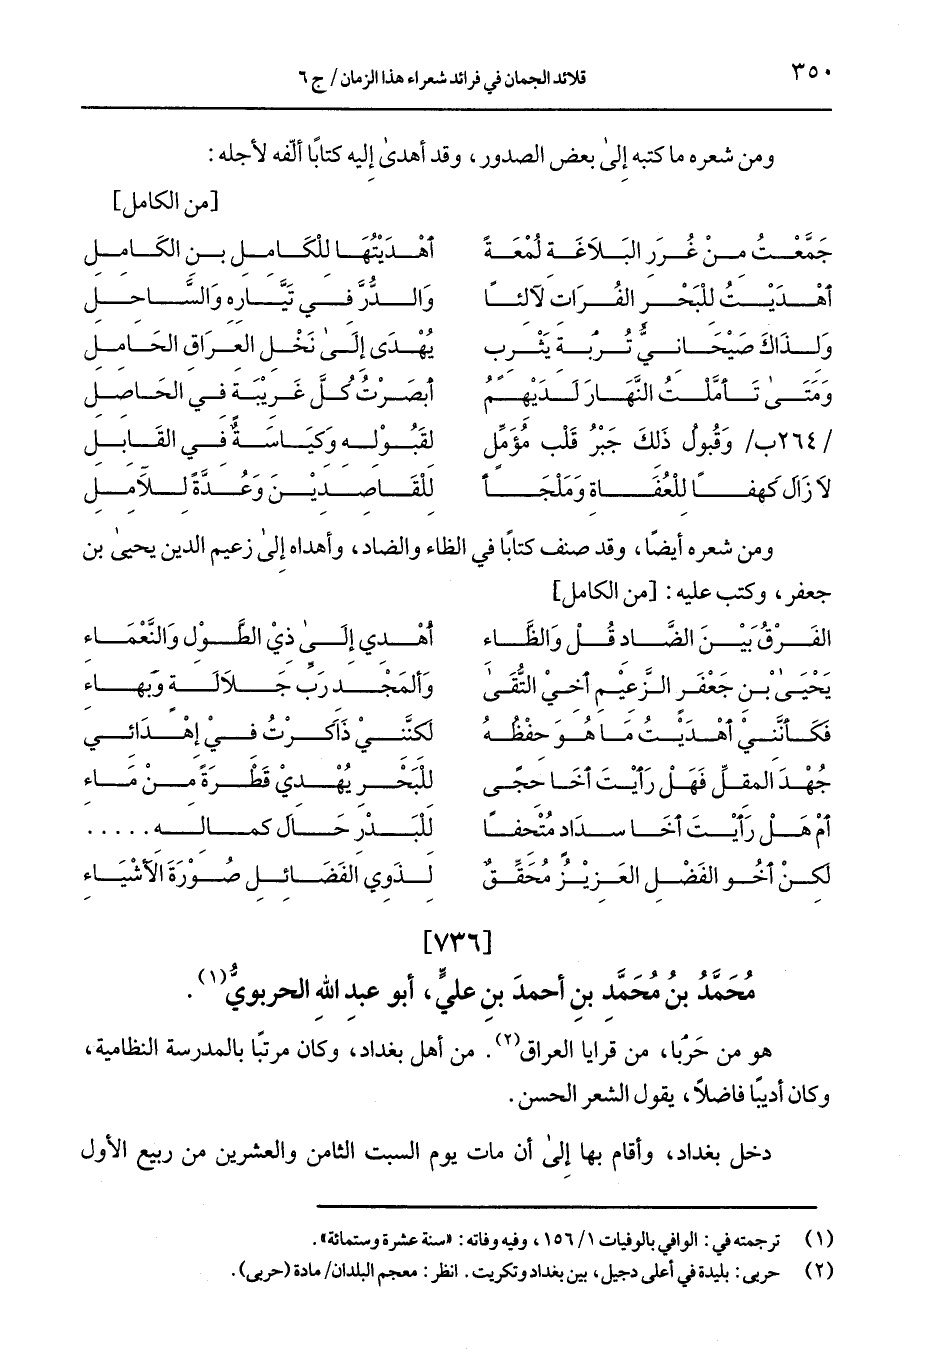 ٣٥٠
قلائد الجمان في فرائد شعراء هذا الزمان/ ج ٦
ومن شعره ما كتبه إلىٰ بعض الصدور، وقد أهدىٰ إليه كتابًا ألّفه لأجله:
[من الكامل]
جَمَّعْتُ مِنْ غُرَرِ البَلَاغَةِ لُمْعَةً أهْدَيْتُهَا لِلْكَامِلِ بِنِ الكَامِلِ
أهْدَيْتُ لِلْبَحْرِ الفُرَاتِ لآلئًا وَالدُّرُّ فِي تَيَّارِهِ وَالسَّاحِلِ
وَلِذَاكَ صَيْحَانيُّ تُرْبَةِ يَثْرِبٍ يُهْدَى إِلَىٰ نَخْلِ العِرَاقِ الحَامِلِ
وَمَتَىٰ تَأمَّلْتُ النَّهَارَ لَدَيْهِمُ أبْصَرْتُ كُلَّ غَرِيْبَةٍ فِي الحَاصِلِ
/٢٦٤ب/ وَقُبولُ ذَلِكَ جَبْرُ قَلْبِ مُؤَمِّلٍ لِقَبُولِهِ وَكِيَاسَةٌ فِي القَابِلِ
لا زَالَ كهفًا لِلْعُفَاةِ وَمَلْجَأً لِلْقَاصِدِيْنَ وَعُدَّةً لِلآمِلِ
ومن شعره أيضًا، وقد صنف كتابًا في الظاء والضاد، وأهداه إلىٰ زعيم الدين يحيىٰ بن
جعفر، وكتب عليه: [من الكامل]
الفَرْقُ بَيْنَ الضَّادِ قُلْ وَالظَّاءِ أهْدِي إِلَىٰ ذِيْ الطَّوْلِ وَالنَّعْمَاءِ
يَحْيَىٰ بْنِ جَعْفَرٍ الزَّعِيْمِ أخِيْ التُّقَىٰ وَالمَجْدِ رَبِّ جَلَالَةٍ وَبَهَاءِ
فَكَأنَّنِيْ أهْدَيْتُ مَا هُوَ حِفْظُهُ لكِنَّنِيْ ذَاكَرْتُ فِيْ إهْدَائِي
جُهْدَ المقِلِّ فَهَلْ رَأيْتَ أخَا حِجًى لِلْبَحْرِ يُهْدِيْ قَطْرَةً مِنْ مَاءِ
أمْ هَلْ رَأيْتَ أخَا سِدَادٍ مُتْحِفًا لِلْبَدْرِ حَالَ كمَالِهِ .....
لكِنْ أخُو الفَضْلِ العَزِيْزِ مُحَقِّقٌ لِذَوِي الفَضَائِلِ صُوْرَةَ الأَشْيَاءِ
[٧٣٦]
مُحَمَّدُ بنُ مُحَمَّدِ بنِ أحمدَ بنِ عليٍّ، أبو عبدِ اللهِ الحربويُّ(١).
هو من حَرْبا، من قرايا العراق(٢). من أهل بغداد، وكان مرتبًا بالمدرسة النظامية،
وكان أديبًا فاضلاً، يقول الشعر الحسن.
دخل بغداد، وأقام بها إلىٰ أن مات يوم السبت الثامن والعشرين من ربيع الأول
(١) ترجمته في: الوافي بالوفيات ١/ ١٥٦، وفيه وفاته: «سنة عشرة وستمائة».
(٢) حربى: بليدة في أعلى دجيل، بين بغداد وتكريت. انظر: معجم البلدان/ مادة (حربى).